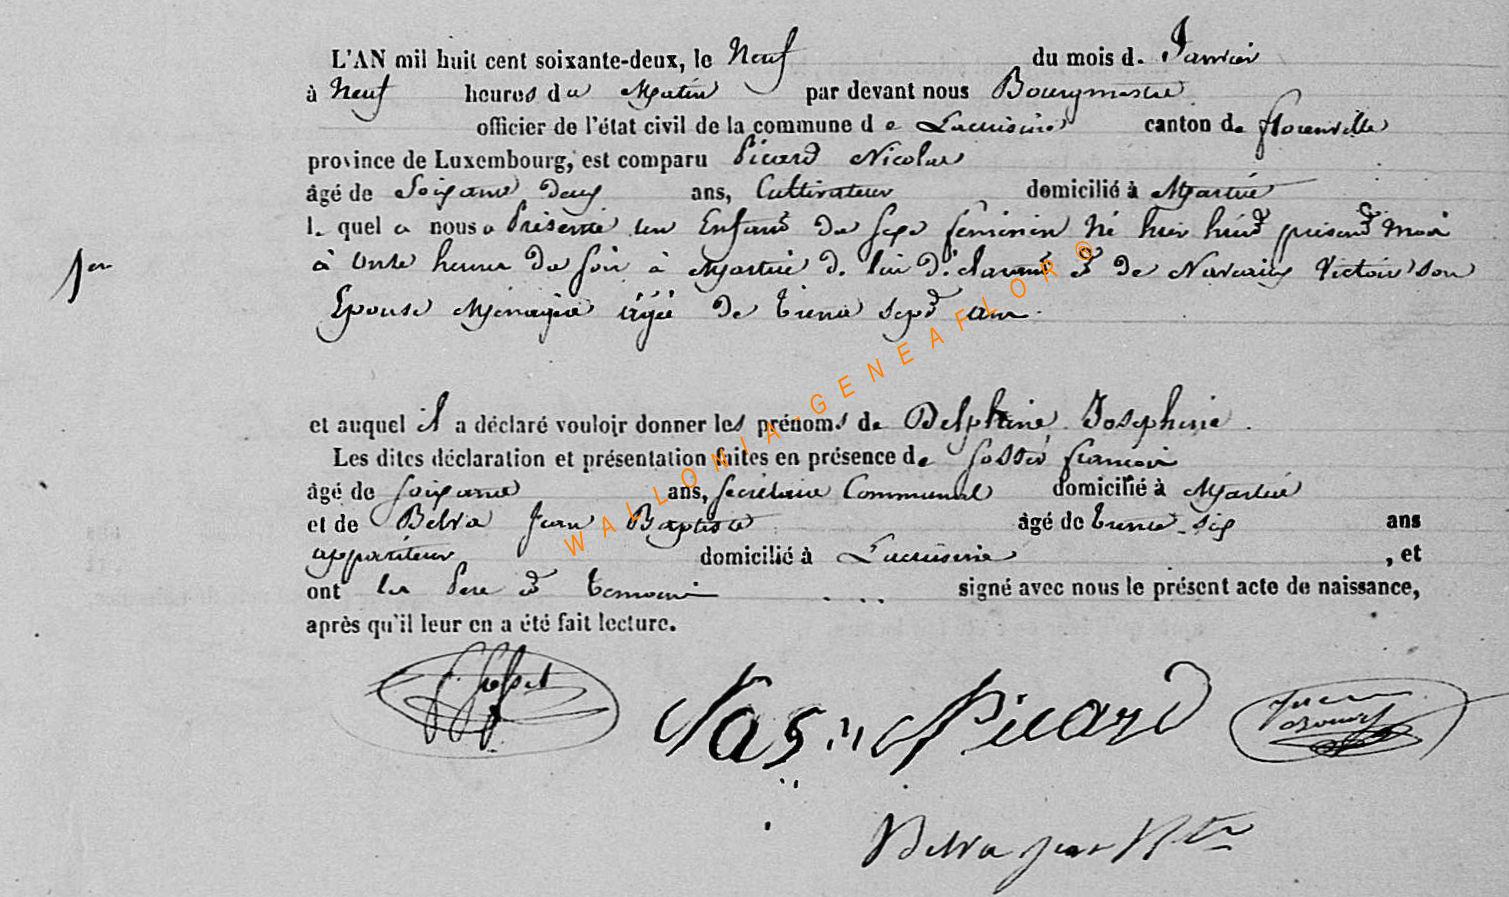 L'AN mil huit cent soixante-deux, le Neuf du mois d. Janvier
à Neuf heures du Matin par devant nous Bourgmestre
officier de l'état civil de la commune de Lacuisine canton de florenville
province de Luxembourg, est comparu Picard Nicolas
âgé de Soixante Deux ans, Cultivateur domicilié à Martué
l. quel a nous a Présenté un Enfant du sexe féminin Né hier huit présent Mois
1er
à onze heures Du soir à Martué d. lui D'éclarant Et de Victoir son
Epouse Ménagère âgée De trente sept ans.
et auquel il a déclaré vouloir donner les prénoms de Delphine Josephine.
Les dites déclaration et présentation faites en présence de françois
âgé de soixante ans, secrétaire Communal domicilié à Martué
et de Belva Jean Baptiste âgé de trente-six ans
appariteur domicilié à Lacuisine, et
ont les Père et temoins signé avec nous le présent acte de naissance,
après qu'il leur en a été fait lecture.
Nas Picard
Belva jean Bte
WALLONIA-GENEAFLOR©